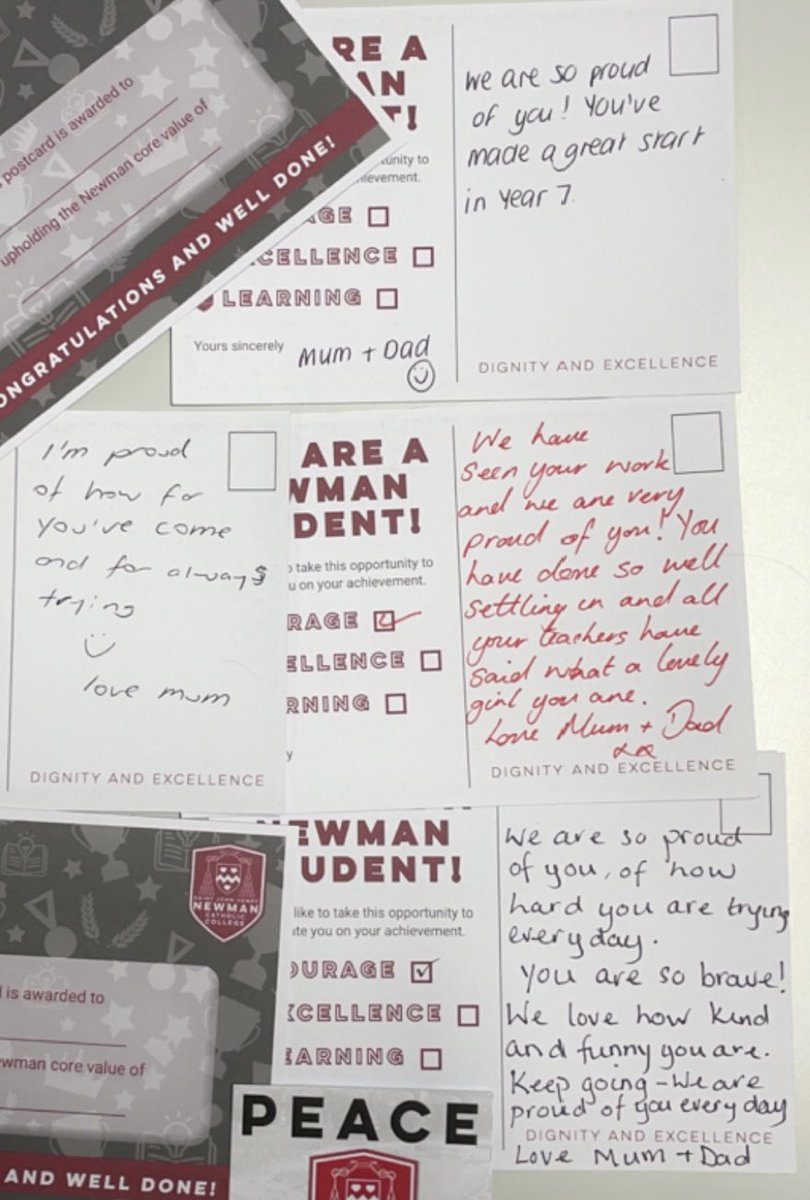 postcard is awarded to
upholding the Newman core value of
CONGRATULATIONS AND WELL DONE!
ARE A
DIGNITY AND EXCELLENCE
LEARNING
Yours sincerely
Mum + Dad
We are so proud
of you! You've
made a great start
in Year 7.
DIGNITY AND EXCELLENCE
I'm proud
of how far
you've come
and for always
trying
love mum
DIGNITY AND EXCELLENCE
ARE A
take this opportunity to
on your achievement.
We have
seen your work
and we are very
proud of you! You
have done so well
settling in and all
your teachers have
said what a lovely
girl you are.
Love Mum + Dad
DIGNITY AND EXCELLENCE
SAINT JOHN HENRY
NEWMAN
CATHOLIC
COLLEGE
is awarded to
core value of
AND WELL DONE!
NEWMAN
like to take this opportunity to
you on your achievement.
We are so proud
of you, of how
hard you are trying
every day.
You are so brave!
We love how kind
and funny you are.
Keep going - We are
proud of you every day
DIGNITY AND EXCELLENCE
Love Mum + Dad
PEACE